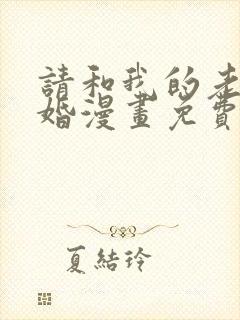 請和我的老
婚漫畫免費
夏結玲